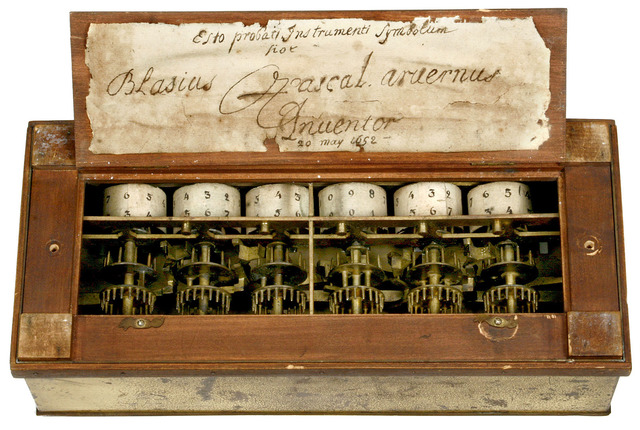 Esto probati Instrumenti Symbolum
hoc
Blasius Pascal. aruernus
Inuentor
20 may 1652
7 6 5
4 3 2
0 9 8
4 3 2
7 6 5